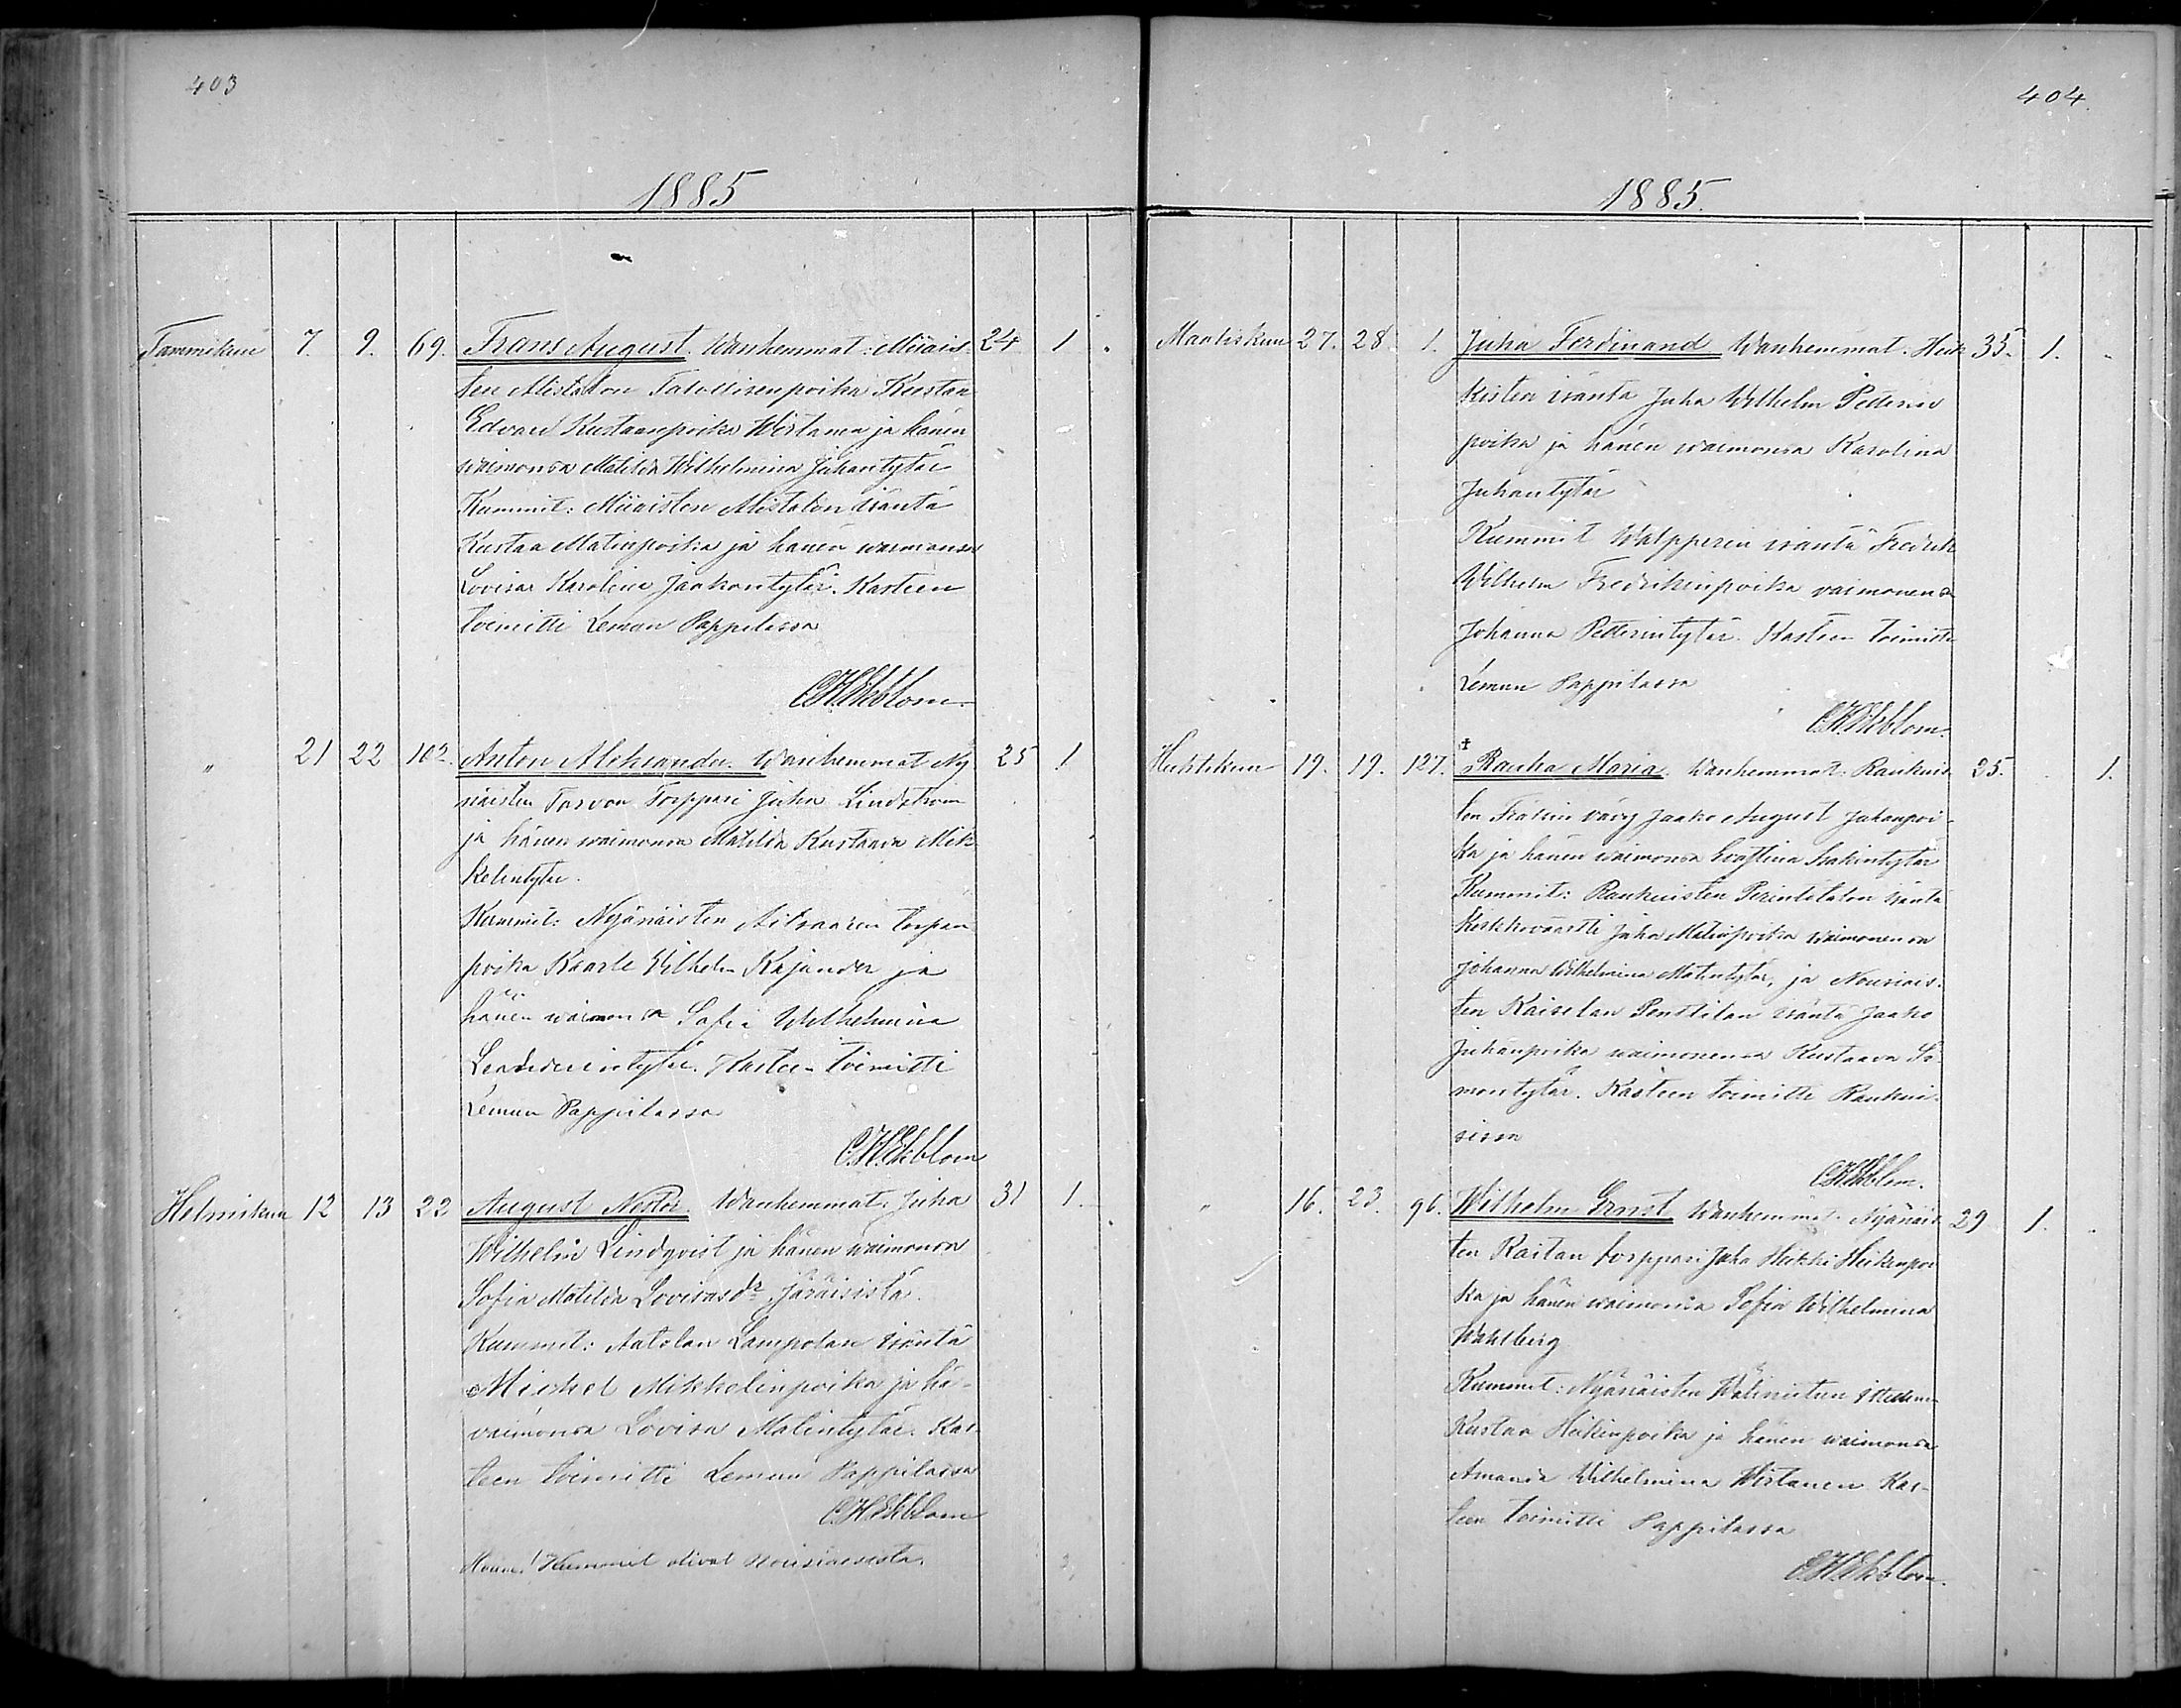 403
1885
Tammikuu 7. 9. 69. Frans August. Wanhemmat: Miiais- 24 1
ten Alistalon Talollisenpoika Kustaa
Edvard Kustaanpoika Wirtanen ja hänen
waimonsa Matilda Wilhelmina Juhantytär
Kummit: Miiaisten Alistalon isäntä
Kustaa Matinpoika ja hänen waimonsa
Lovisa Karolina Jaakontytär. Kasteen
toimitti Lemun Pappilassa
C.H.Ekblom.
" 21 22 102. Anton Aleksander. Wanhemmat Ny- 25 1
näisten Torppari Juha Lindström
ja hänen waimonsa Matilda Kustaava Mik-
kelintytär.
Kummit: Nyänäisten torpan
poika Kaarle Wilhelm Kajander ja
hänen waimonsa Sofia Wilhelmina
Kasteen toimitti
Lemun Pappilassa
C.H.Ekblom
Helmikuu 12 13 22 August Nestor. Wanhemmat: Juha 31 1.
Wilhelm Lindqvist ja hänen waimonsa
Sofia Matilda Lovisasdr Järäisistä.
Kummit: Aatolan Lampolan isäntä
Michel Mikkelinpoika ja hä-
vaimonsa Lovisa Matintytär. Kas-
teen toimitti Lemun Pappilassa
C.H.Ekblom
Muist.! Kummit olivat Nousiaisista.
404.
1885.
Maaliskuu 27. 28. 1. Juha Ferdinand Wanhemmat. Heik- 35. 1.
kisten isäntä Juha Wilhelm Petterin
poika ja hänen waimonsa Karolina
Juhantytär
Kummit Walpperin isäntä Fredrik
Wilhelm Fredrikinpoika vaimonensa
Johanna Petterintytär. Kasteen toimitti
Lemun Pappilassa
C.H.Ekblom.
Huhtikuu 19. 19. 127. Rauha Maria. Wanhemmat: Rankuis- 25. 1.
ten vävy Jaako August Juhanpoi-
ka ja hänen waimonsa Evastina Isakintytär
Kummit: Rankuisten Perintötalon isäntä
Kirkkoväärti Juha Matinpoika waimonensa
Johanna Wilhelmina Matintytär, ja Nousiais-
ten Kaiselan Penttilan isäntä Jaako
Juhanpoika waimonensa Kustaava Si-
montytär. Kasteen toimitti Rankui-
sissa
C.H.Ekblom.
" 16. 23. 96. Wilhelm Ernst Wanhemmat. Nyänäis- 29 1.
ten Raitan torppari Juha Heikki Heikinpoi
ka ja hänen waimonsa Sofia Wilhelmina
Wahlberg
Kummit: Nyänäisten
Kustaa Heikinpoika ja hänen waimonsa
Amanda Wilhelmina Wirtanen Kas-
teen toimitti Pappilassa
C.H.Ekblom.